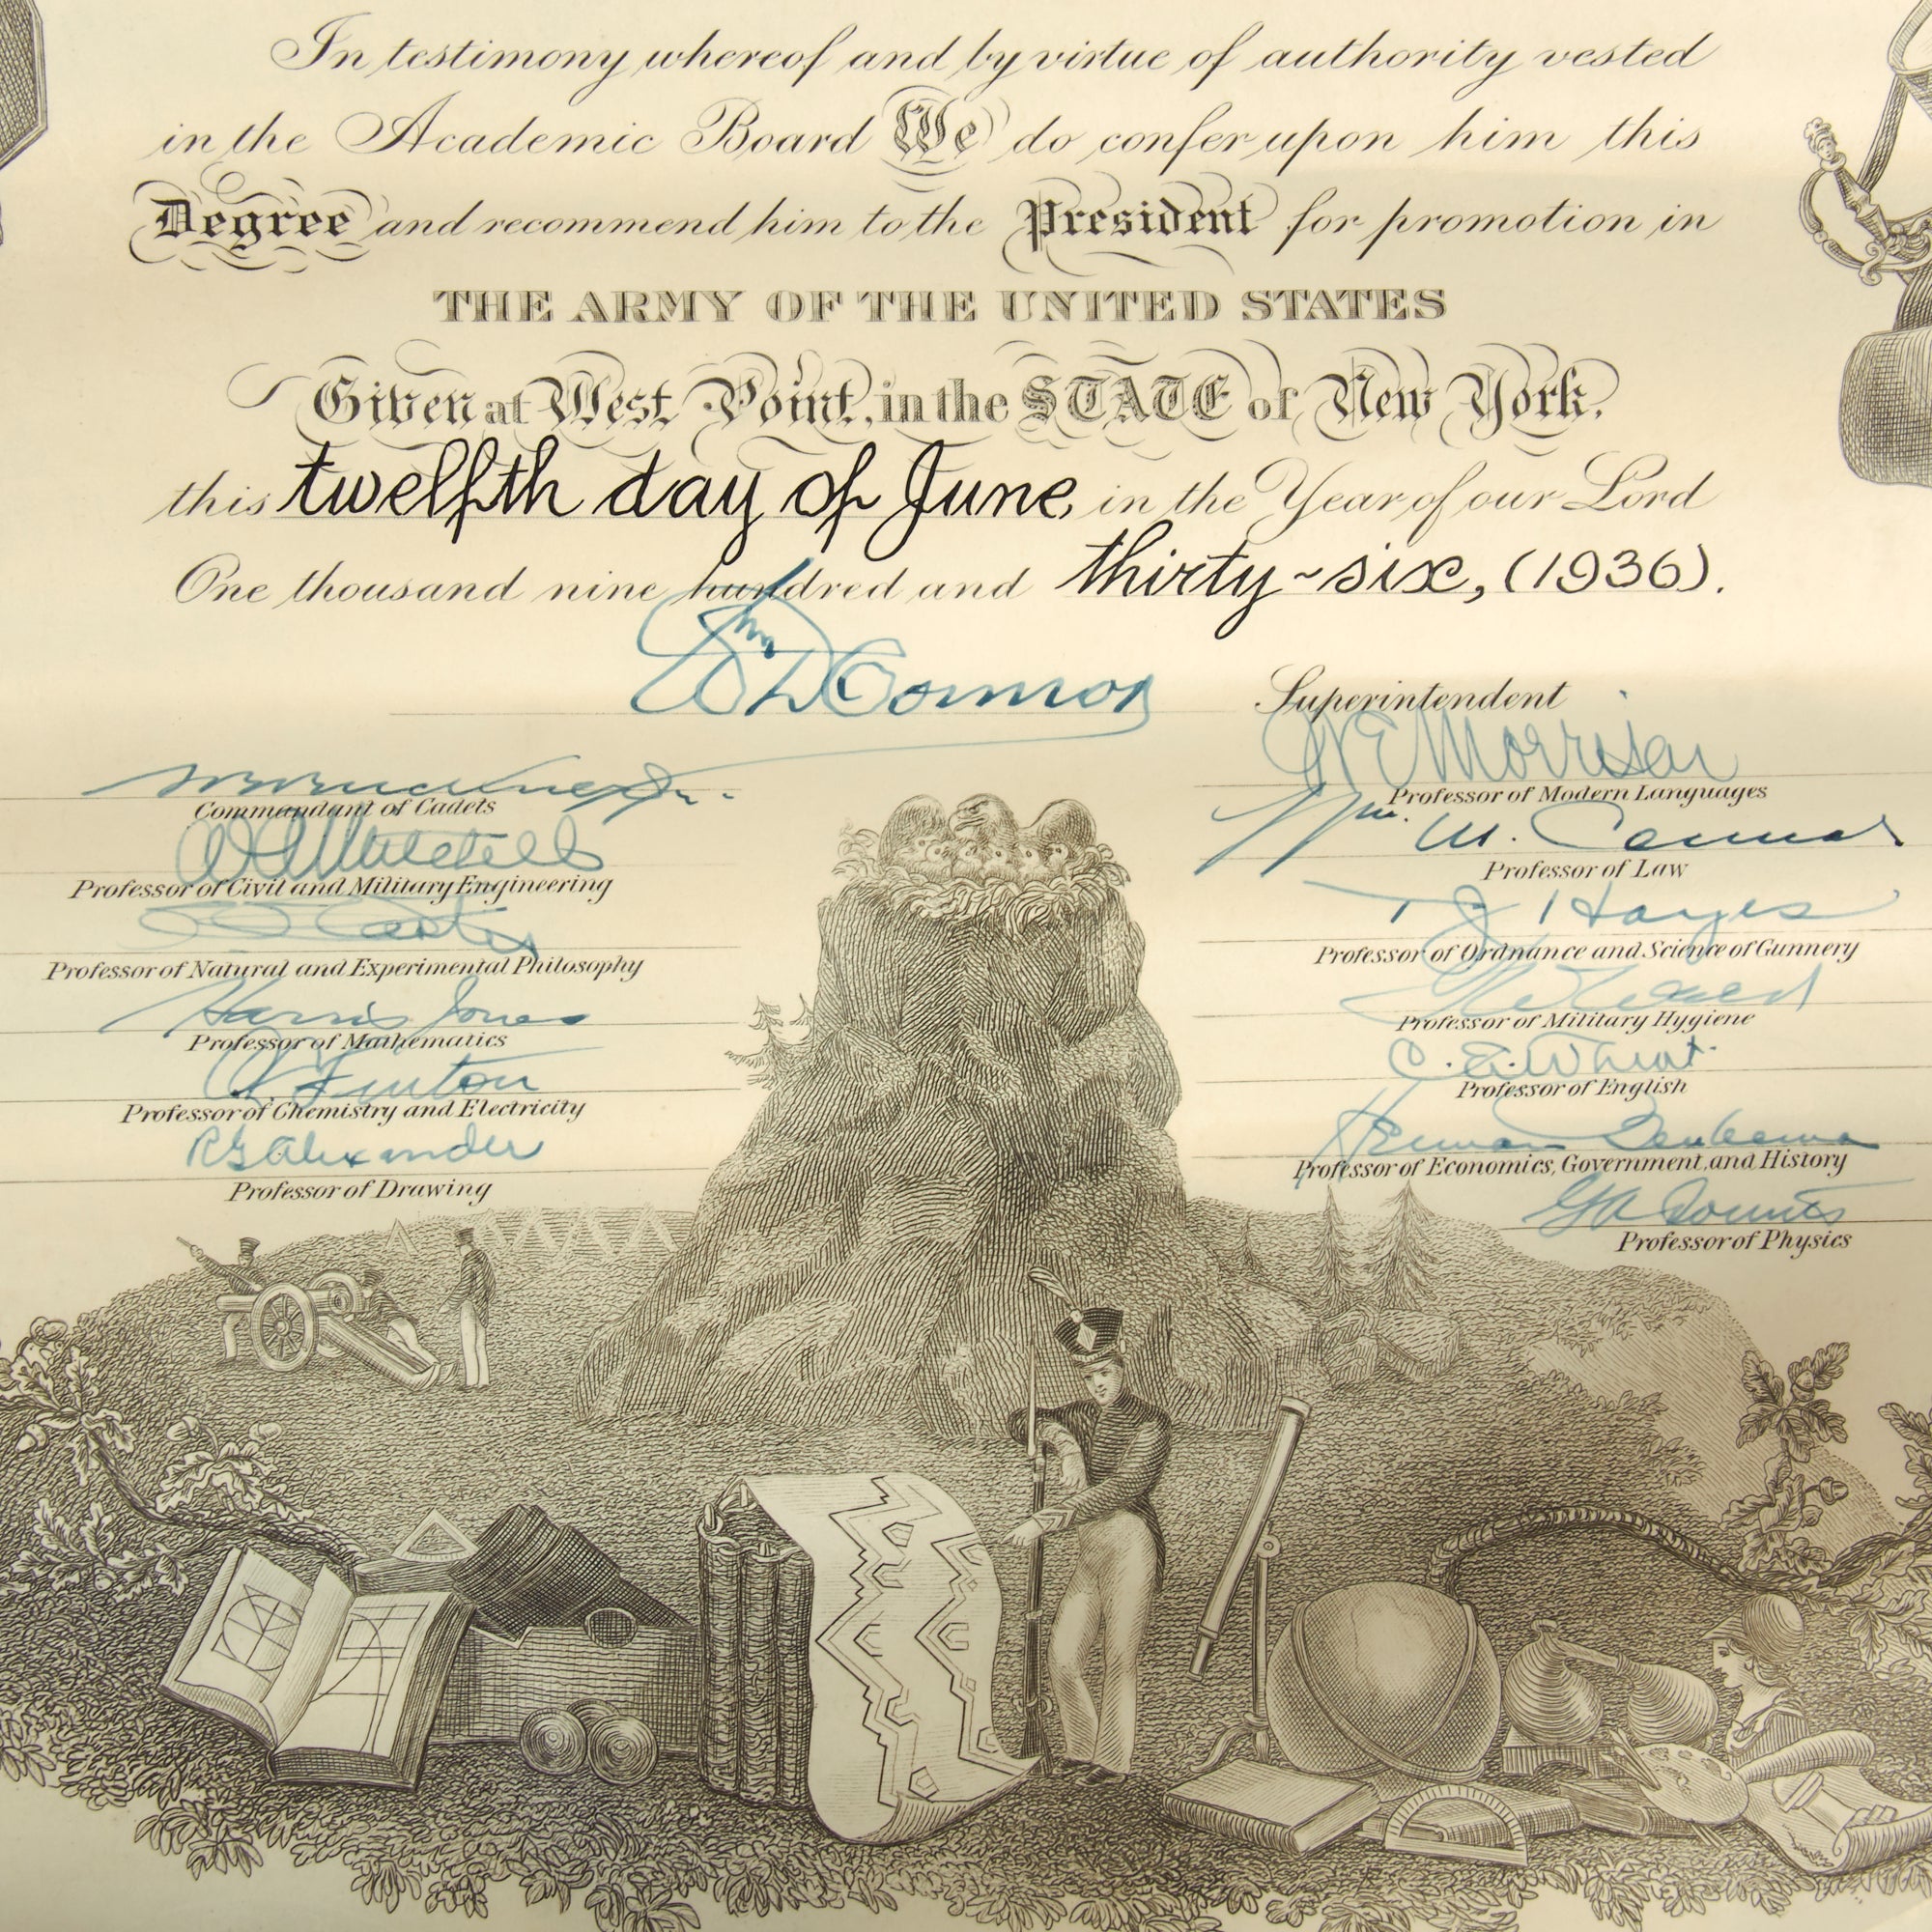 In testimony whereof and by virtue of authority vested
in the Academic Board We do confer upon him this
Degree and recommend him to the President for promotion in
THE ARMY OF THE UNITED STATES
Given at West Point, in the STATE of New York,
this twelfth day of June, in the Year of our Lord
One thousand nine hundred and thirty-six, (1936).
WD Connor
Superintendent
Commandant of Cadets
Mitchell
Professor of Civil and Military Engineering
Carter
Professor of Natural and Experimental Philosophy
Harris Jones
Professor of Mathematics
Fenton
Professor of Chemistry and Electricity
RG Alexander
Professor of Drawing
WE Morrison
Professor of Modern Languages
Wm. M. Connor
Professor of Law
TJ Hayes
Professor of Ordnance and Science of Gunnery
Professor of Military Hygiene
C. E. Wheat
Professor of English
Herman Beukema
Professor of Economics, Government, and History
GA Counts
Professor of Physics